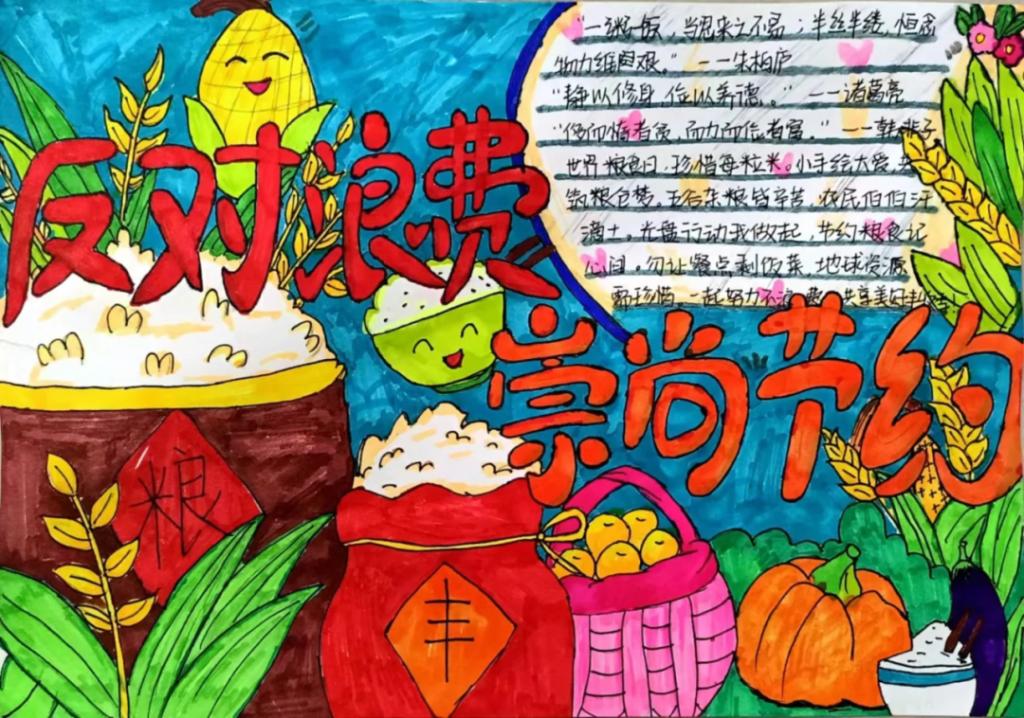 反对浪费
崇尚节约
"一粥一饭，当思来之不易；半丝半缕，恒念
物力维艰。"——朱柏庐
"静以修身，俭以养德。"——诸葛亮
"侈而惰者贫，而力而俭者富。"——韩非子
世界粮食日，珍惜每粒米。小手绘大爱，共
筑粮仓梦。五谷杂粮皆辛苦，农民伯伯汗
滴土。光盘行动我做起，节约粮食记
心间。勿让餐点剩饭菜，地球资源
需珍惜。一起努力不浪费，共享美好
粮
丰